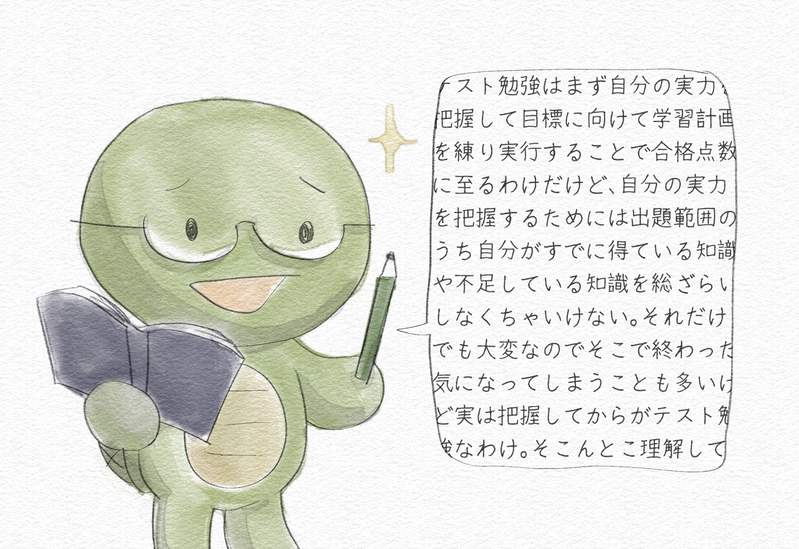 テスト勉強はまず自分の実力
把握して目標に向けて学習計画
を練り実行することで合格点数
に至るわけだけど、自分の実力
を把握するためには出題範囲の
うち自分がすでに得ている知識
や不足している知識を総ざらい
しなくちゃいけない。それだけ
でも大変なのでそこで終わった
気になってしまうことも多いけ
ど実は把握してからがテスト勉
強なわけ。そこんとこ理解して